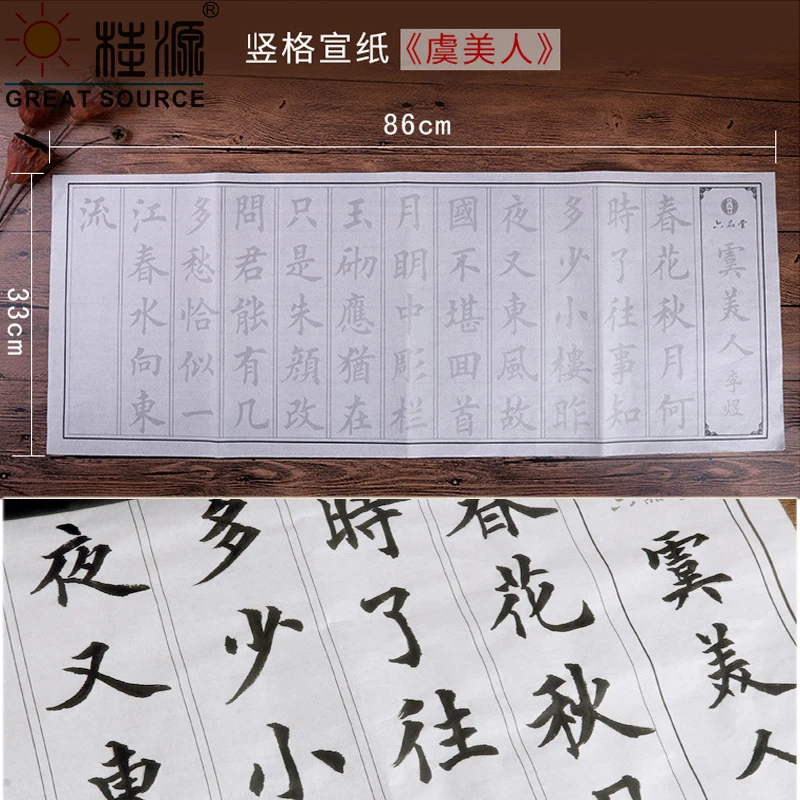 桂源®
GREAT SOURCE
竖格宣纸《虞美人》
86cm
33cm
六品堂
虞美人 李煜
春花秋月何
時了往事知
多少小樓昨
夜又東風故
國不堪回首
月明中彫栏
玉砌應猶在
只是朱顔改
問君能有几
多愁恰似一
江春水向東
流
六品堂
虞美人
春花秋月
時了往
多少小
夜又東